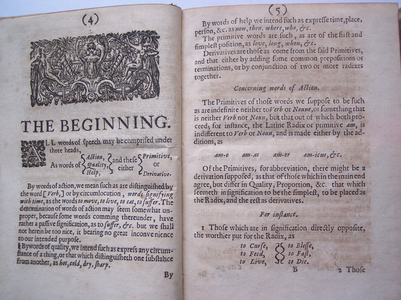 (4)
THE BEGINNING.
ALL words of speech may be comprised under
three heads,
As words of { Action, Quality, Help, } and these either { Primitive, or Derivative.
By words of action, we mean such as are distinguished by
the word [Verb,] or by circumlocution, words, signifying
with time, as the words to move, to love, to eat, to suffer. The
determination of words of action may seem somewhat un-
proper, because some words comming thereunder, have
rather a passive signification, as to suffer, &c. but we shall
not herein be too nice, it bearing no great inconvenience
to our intended purpose.
By words of quality, we intend such as express any circum-
stance of a thing, or that which distinguisheth one substance
from another, as hot, cold, dry, sharp.
By
(5)
By words of help we intend such as expresse time, place,
person, &c. as now, then, where, who, &c.
The primitive words are such, as are of the first and
simplest position, as love, long, when, &c.
Derivative are those as come from the said Primitives,
and that either by adding some compositions or
terminations, or by conjunction of two or more radixes
together.
Concerning words of Action.
The Primitives of those words we suppose to be such
as are indefinite neither to Verb or Noune, or something that
is neither Verb not Noun, but that out of which both pro-
ceed; for instance, the Latine Radix or primitive am, is
indifferent to Verb or Noun, and is made either by the ad-
ditions, as
am-o am-as am-or am-icus, &c.
Of the Primitives, for abbreviation, there might be a
derivation supposed, as that of those which in the main end
agree, but differ in Quality, Proportion, &c. that which
seemeth in signification to be the simplest, to be placed
as the Radix, and the rest as derivatives.
For instance.
1 Those which are in signification directly opposite,
the worthier put for the Radix, as
to Curse, to Blesse,
to Feed, to Fast,
to Live, to Die.
B 2 Those